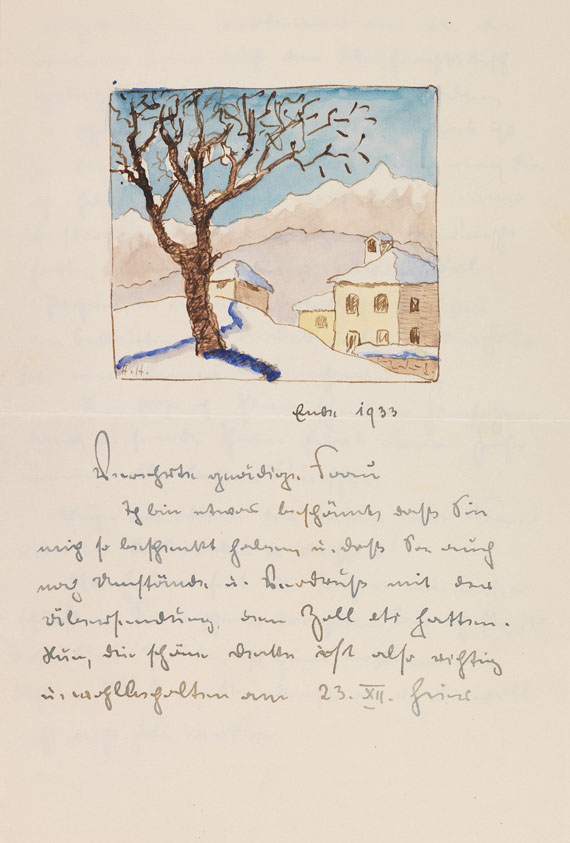 H.H.
Ende 1933
Verehrte gnädige Frau
Ich bin etwas beschämt, daß Sie
mich so beschenkt haben u. daß Sie auch
noch Umstände u. Verdruß mit der
Übersendung, dem Zoll etc hatten.
Nun, die schöne Decke ist also richtig
u. wohlbehalten am 23. XII. hier